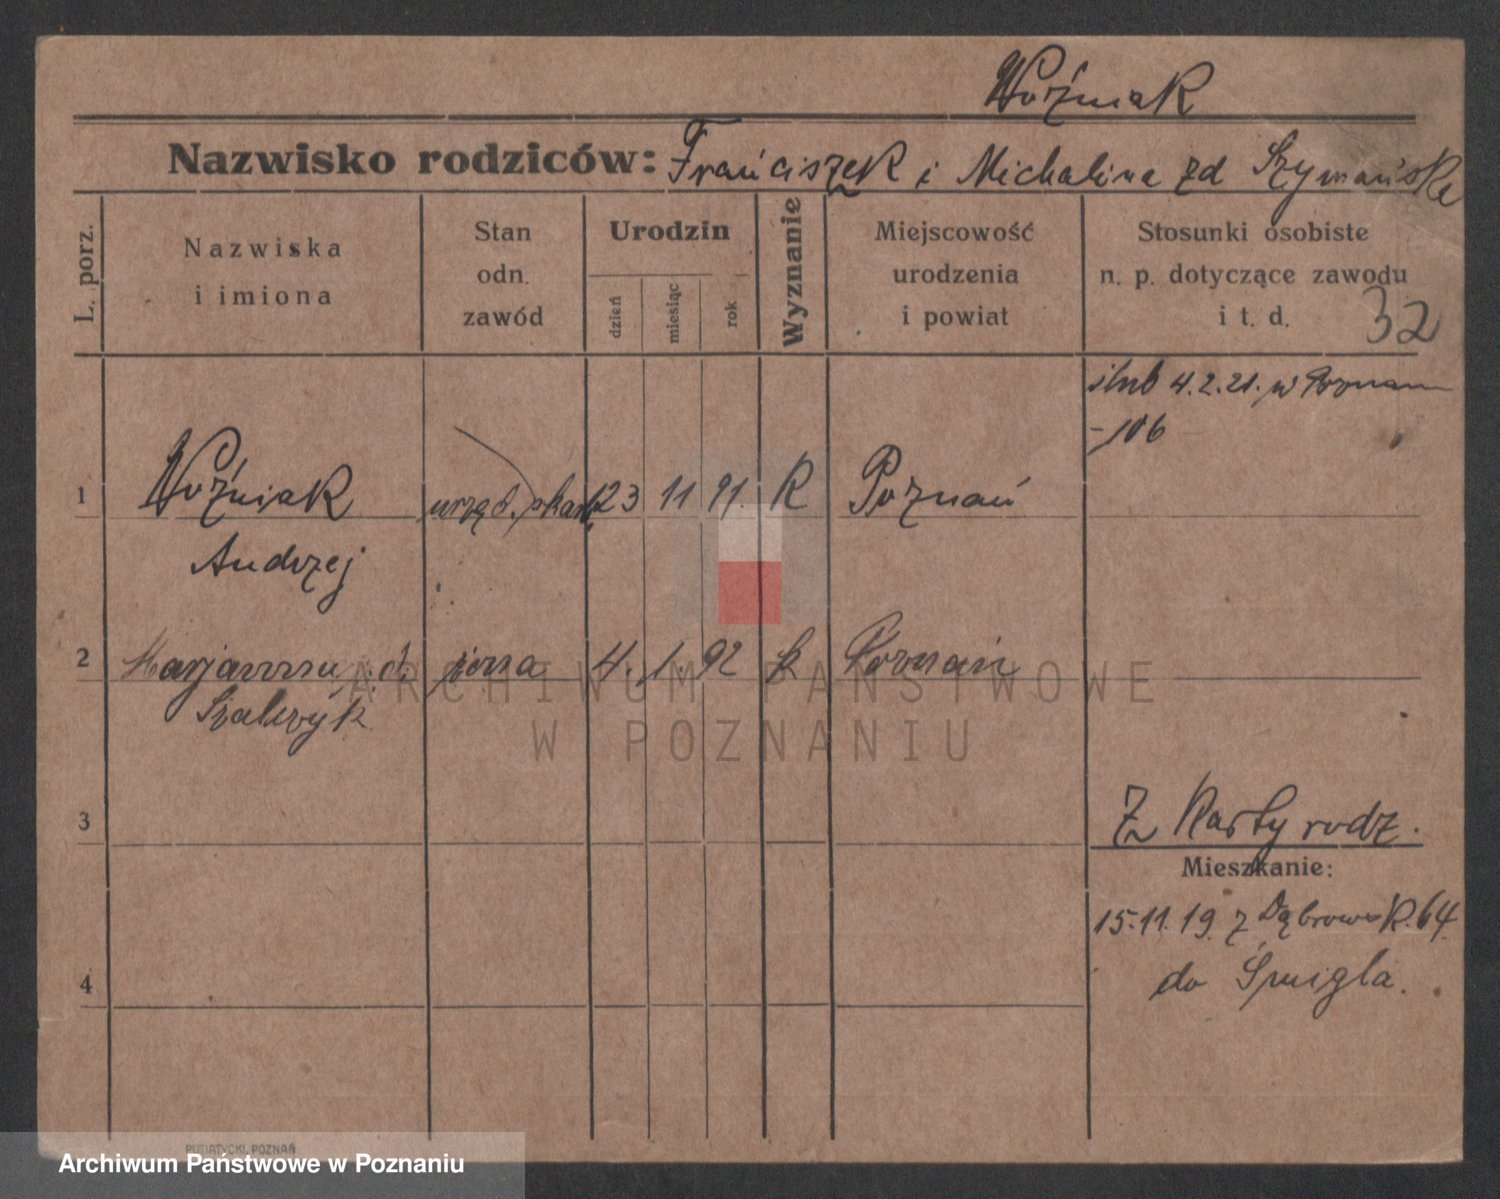 Woźniak
Nazwisko rodziców: Franciszek i Michalina zd Szymańska
L. porz.
Nazwiska
i imiona
Stan
odn.
zawód
Urodzin
dzień
miesiąc
rok
Wyznanie
Miejscowość
urodzenia
i powiat
Stosunki osobiste
n. p. dotyczące zawodu
i t. d.
32
ślub 4.2.21. w Poznaniu
-106
1 Woźniak urzęd. skarb. 23 11 91. K Poznań
Andrzej
2 Marjanna żona 4. 1. 92 k Poznań
3
Z Karty rodz.
Mieszkanie:
15.11.19. z Dąbrowsk. 64.
4
do Śmigla.
PUTIATYCKI, POZNAŃ
ARCHIWUM PAŃSTWOWE
W POZNANIU
Archiwum Państwowe w Poznaniu